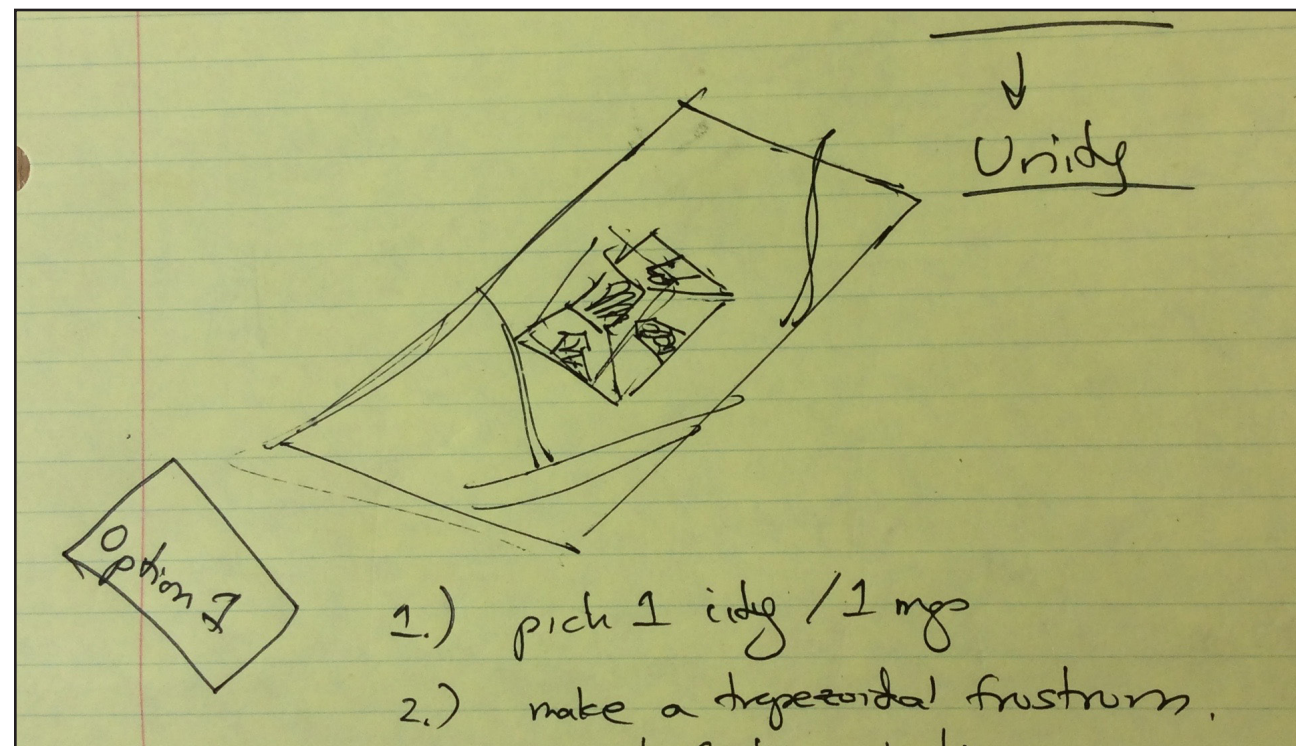 Unity
Option 1
1.) pick 1 /1
2.) make a trapezoidal frustrum.